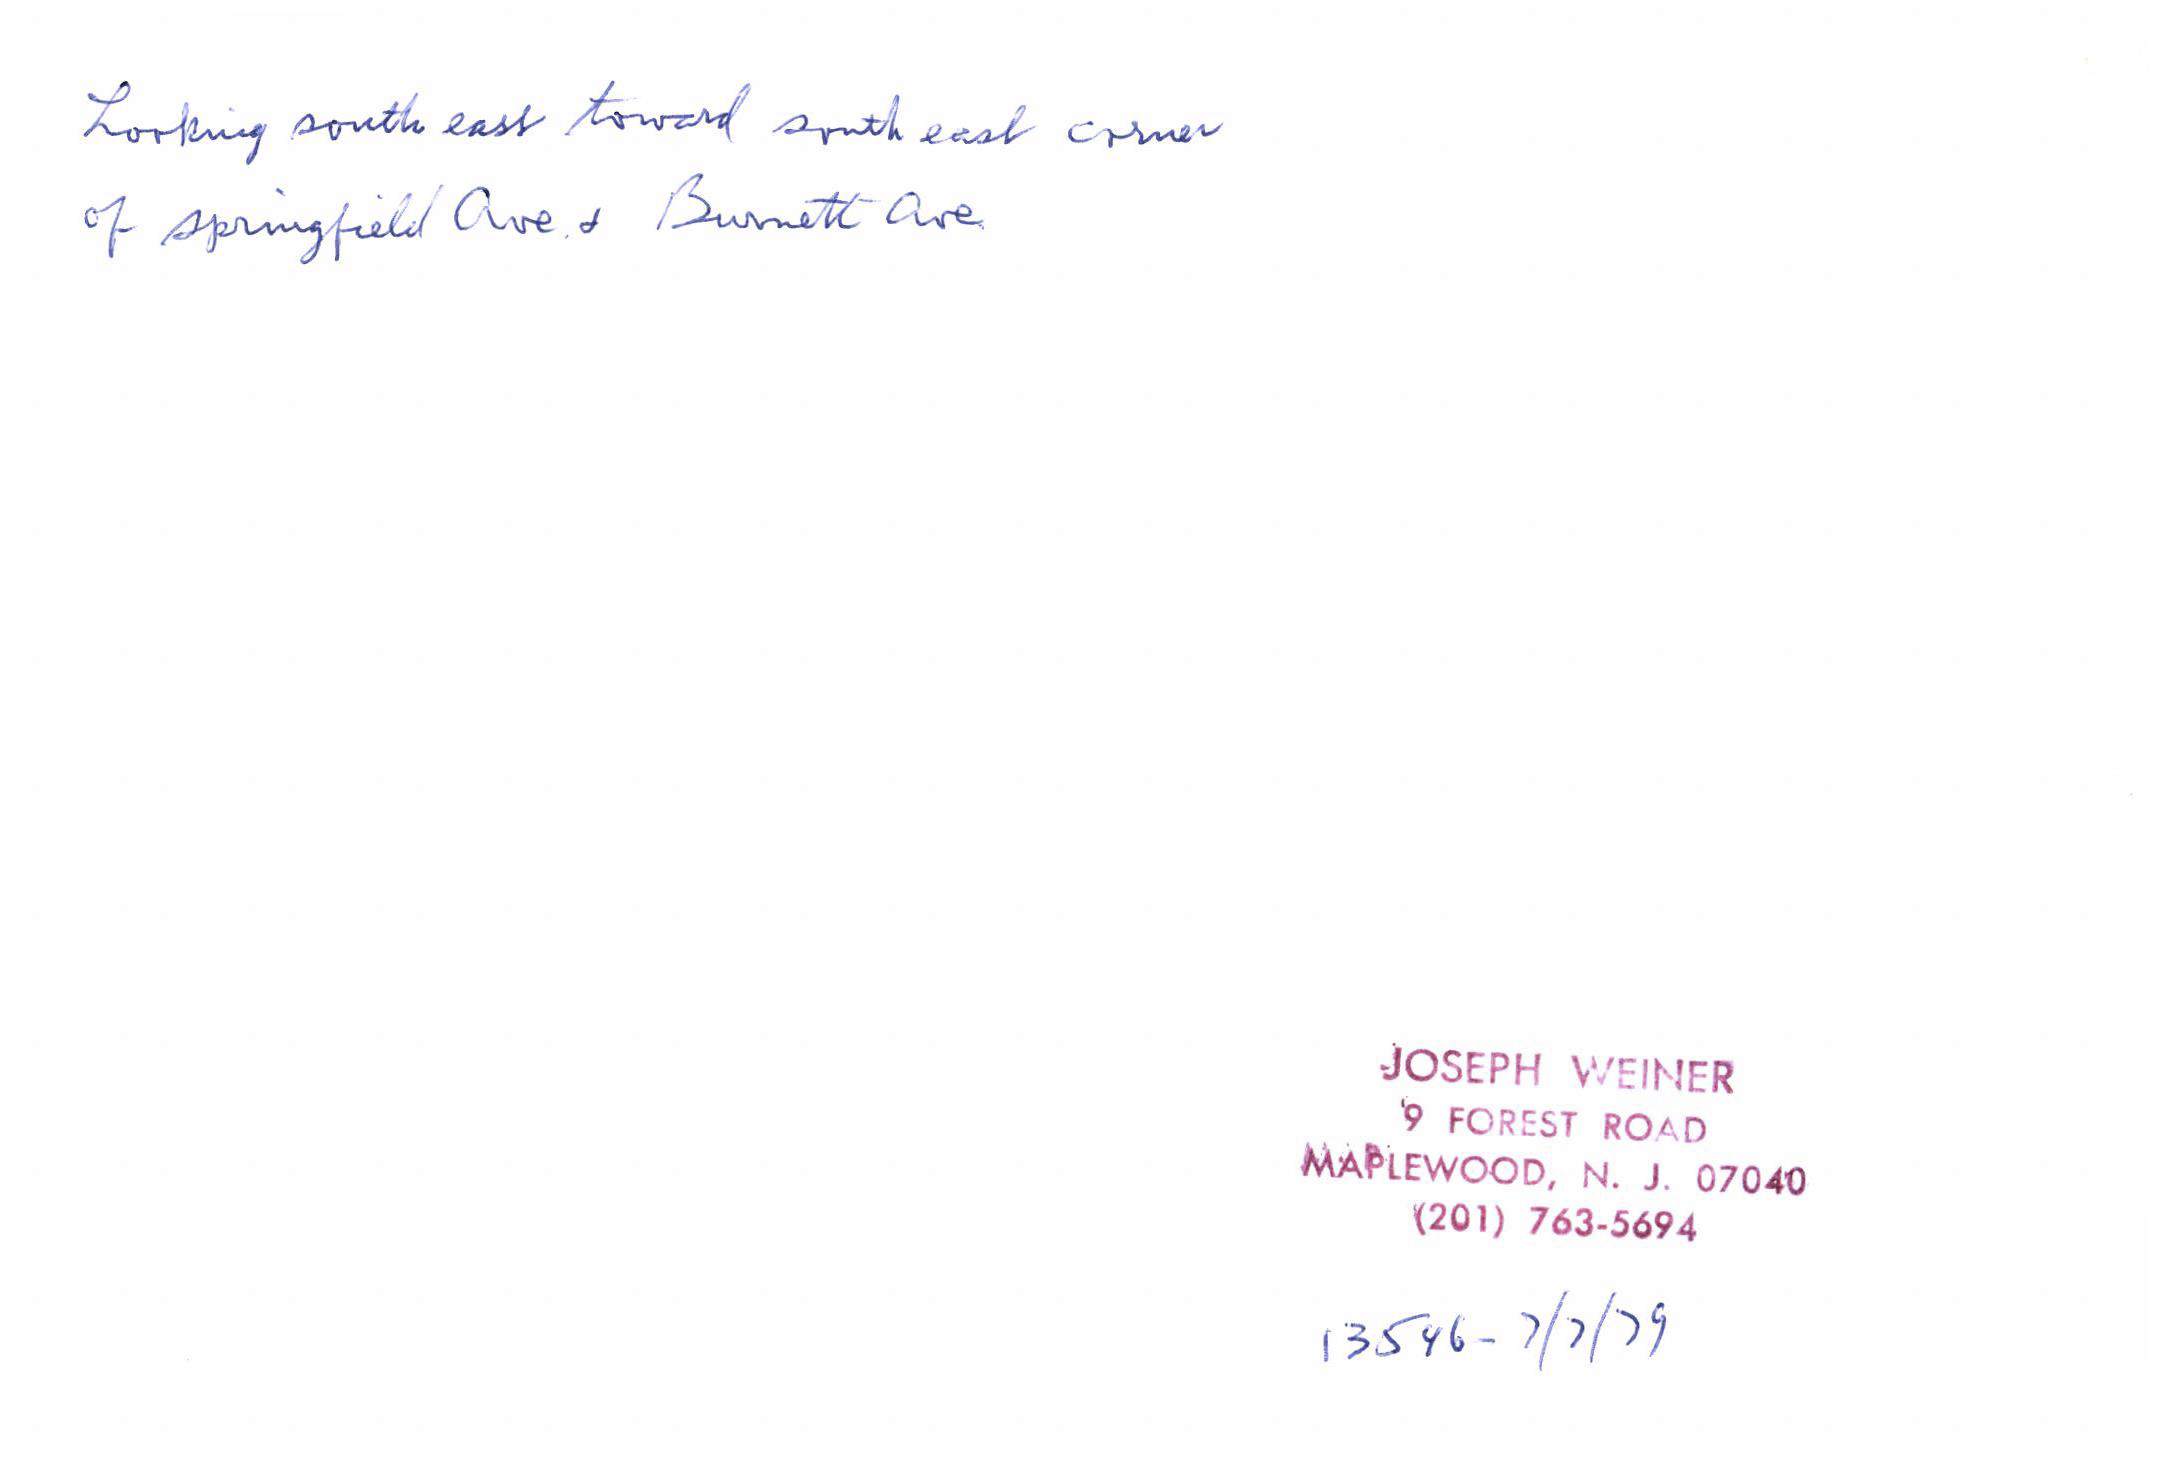 Looking south east toward south east corner
of springfield Ave. & Burnett Ave.
JOSEPH WEINER
9 FOREST ROAD
MAPLEWOOD, N. J. 07040
(201) 763-5694
13546- 7/7/79